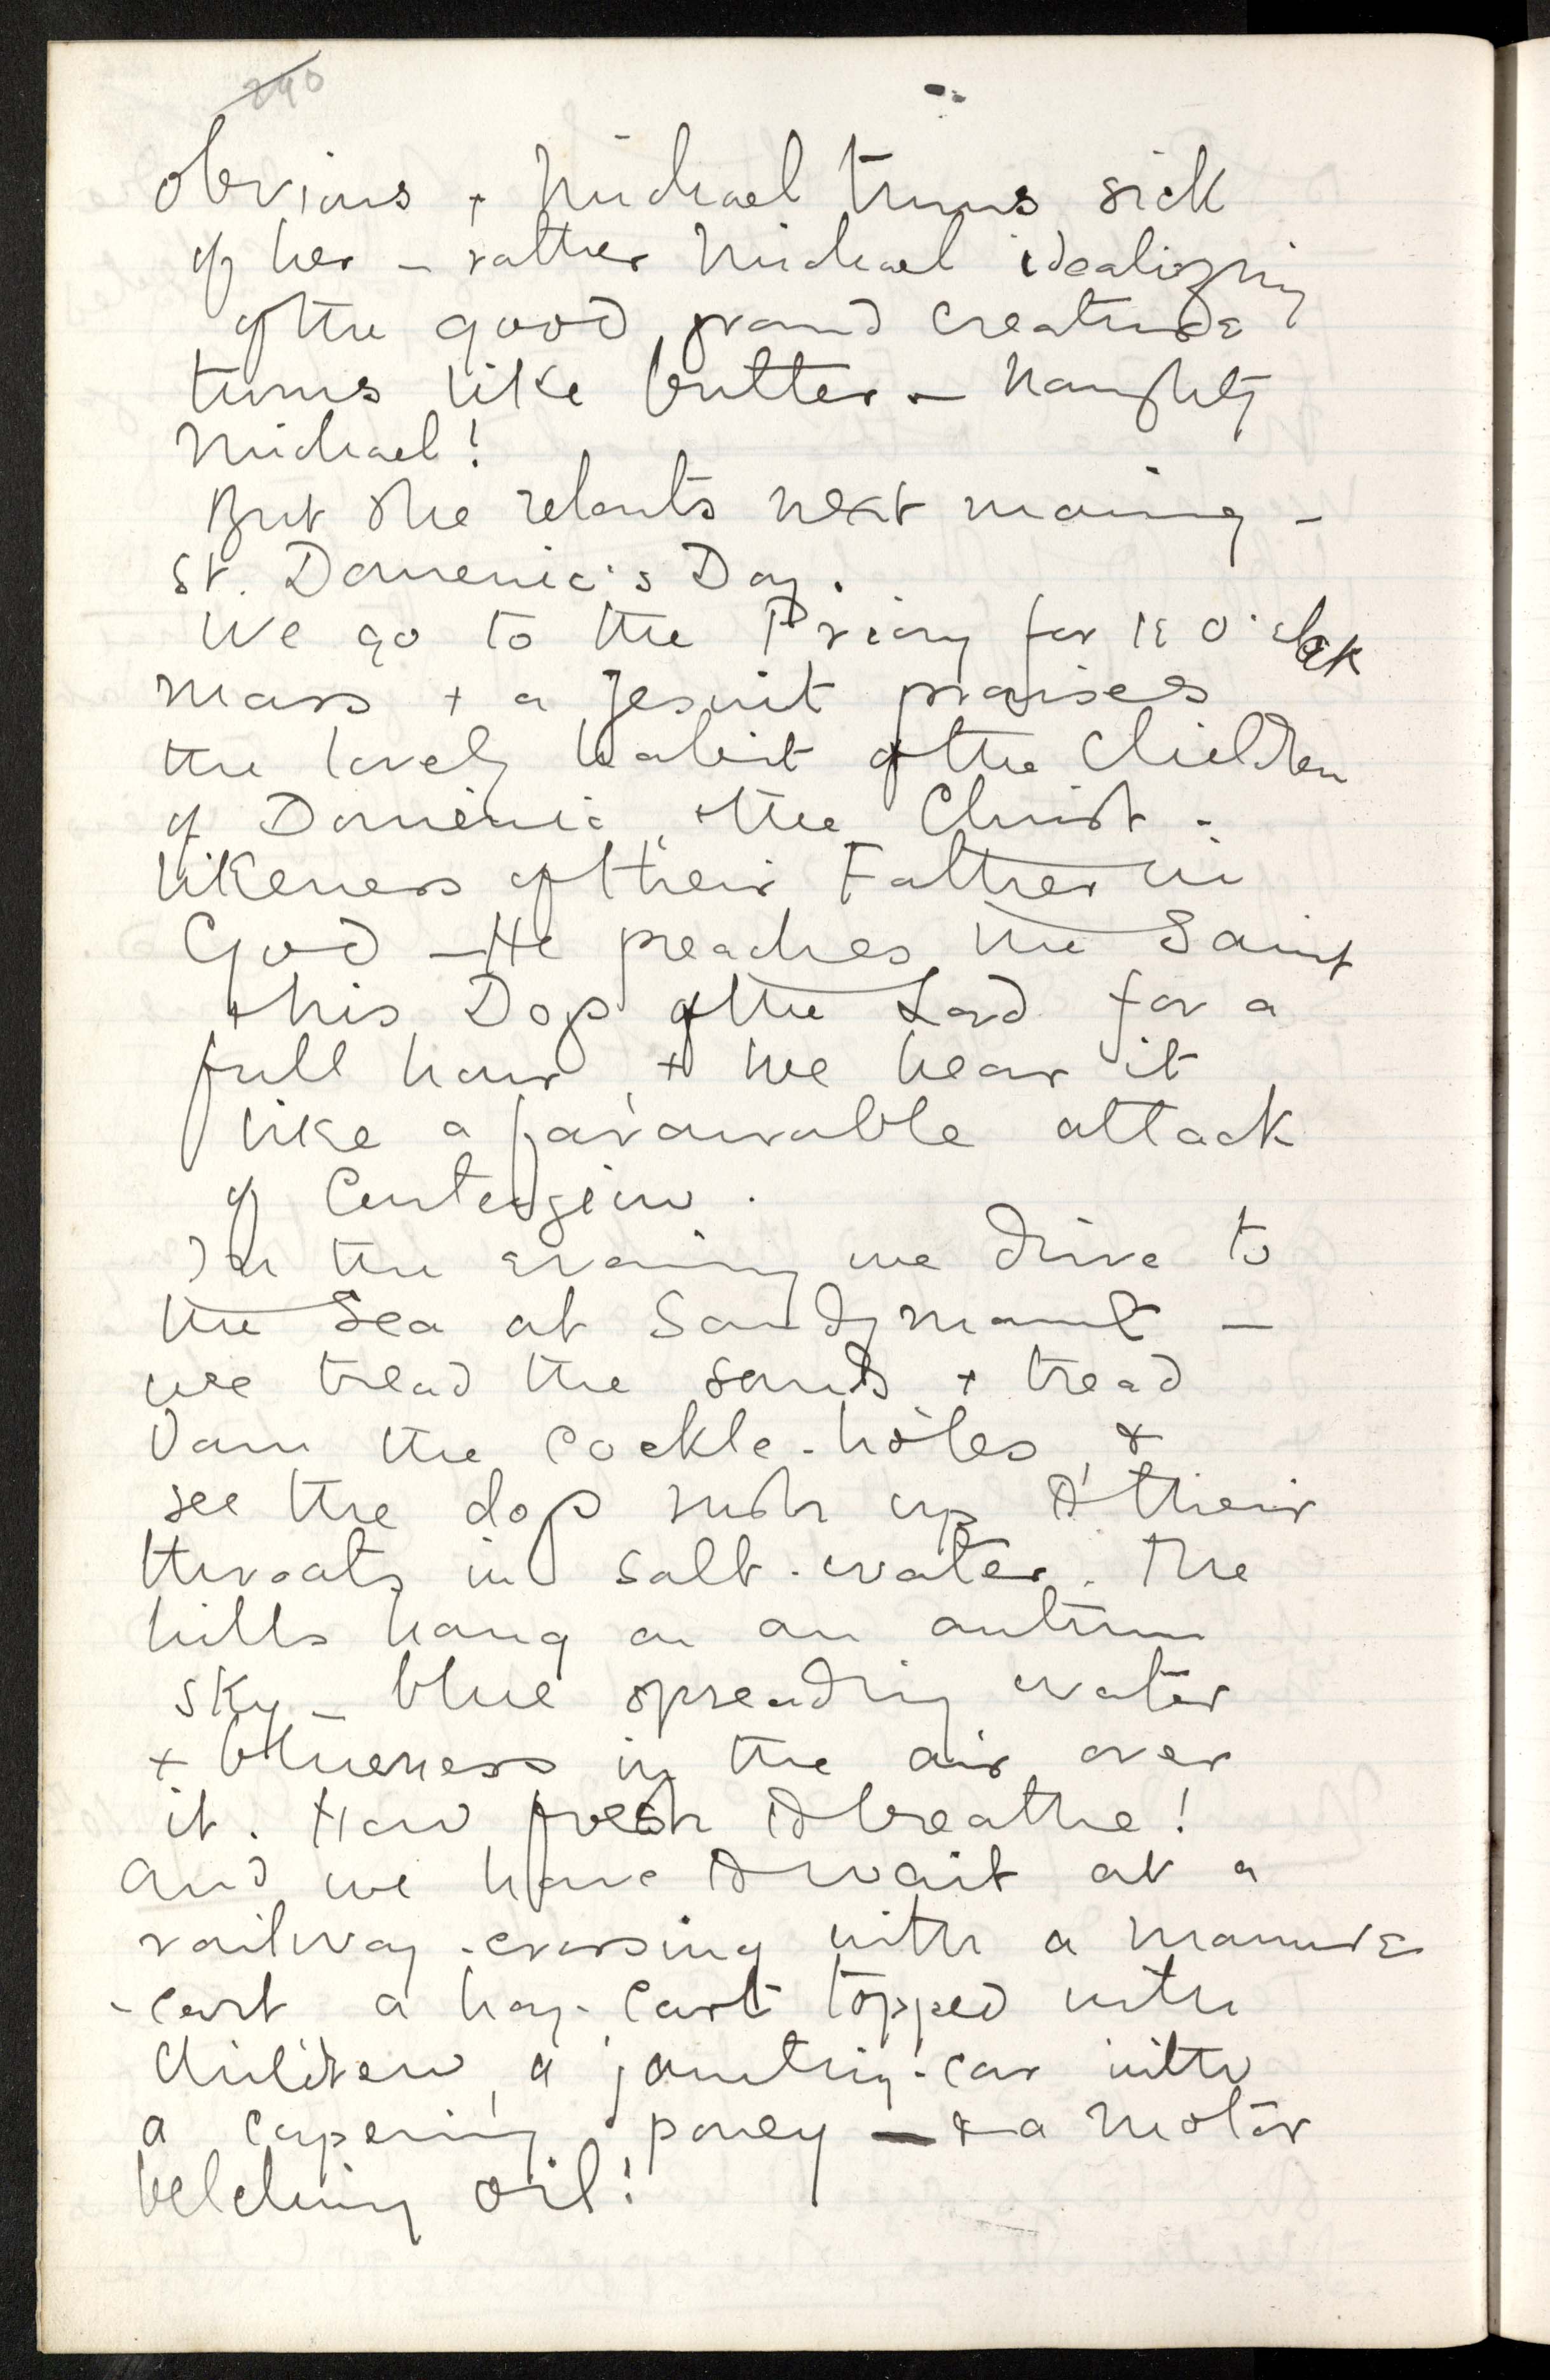 240
obvious + Michael turns sick
of her – rather Michael idealizing
of the good, proud creature
turns like butter – Naughty
Michael!
But she relents next morning –
St. Domenic's Day.
We go to the Priory for 12 o'clock
mass + a Jesuit praises
the lovely habit of the Children
of Domenic, the Christ-
likeness of their Father in
God – He preaches the Saint
+ his Dogs of the Lord for a
full hour, + we hear it
like a favourable attack
of Contagion.
In the evening we drive to
the Sea at Sandymount –
we tread the sands + tread
down the cockle-holes, &
see the dogs rush up to their
throats in salt-water. The
hills hang on an autumn
sky – blue spreading water
+ blueness in the air over
it. How fresh to breathe!
And we have to wait at a
railway-crossing with a manure
-cart a hay-cart topped with
children, a jaunting-car with
a capering poney – & a motor
belching oil!